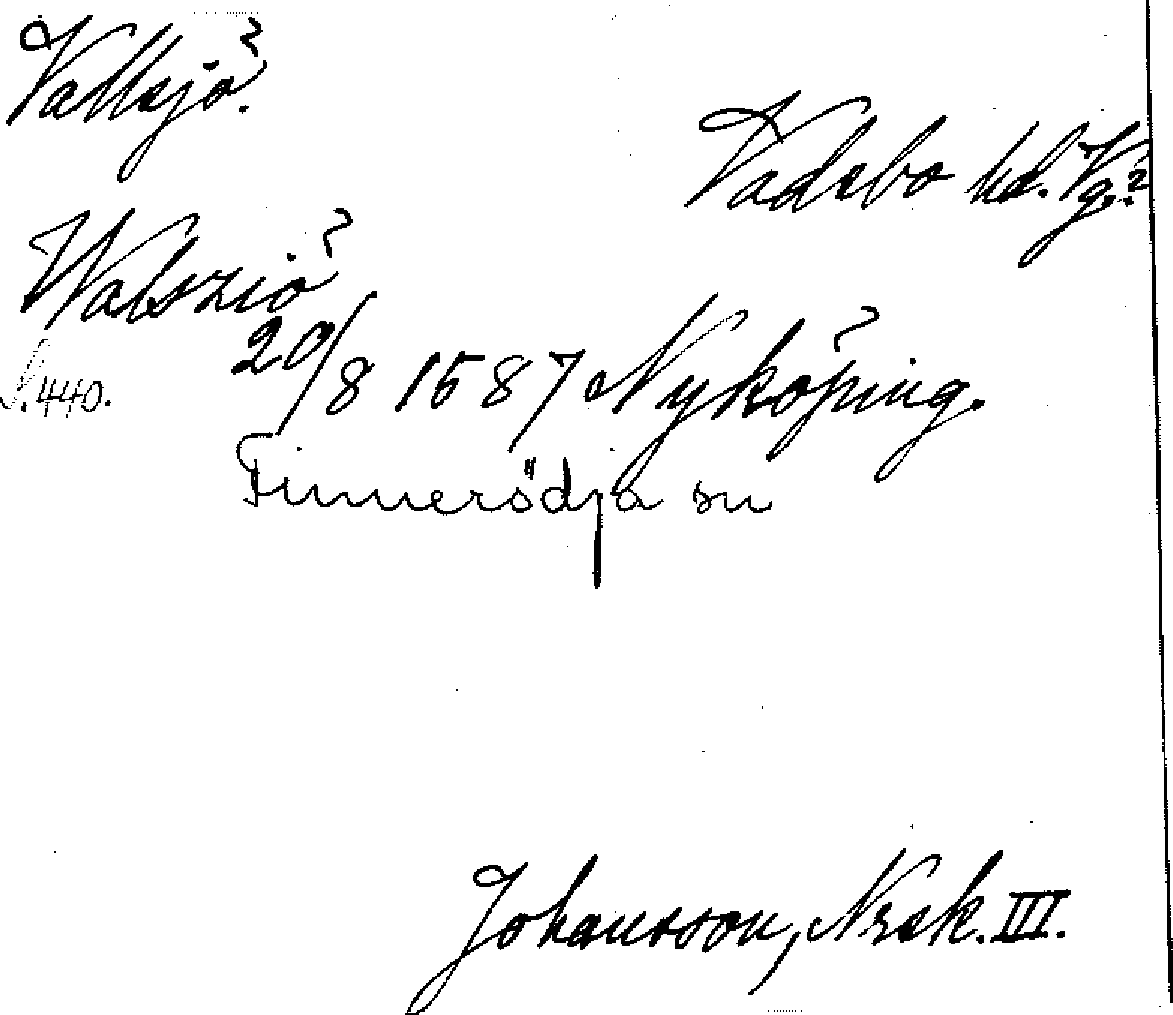 Vallsjö?
Vadsbo hd. Vg.?
Walsziö?
20/8 1587 Nyköping.
S. 440.
Finnerödja sn
Johansson, Nrsk. III.